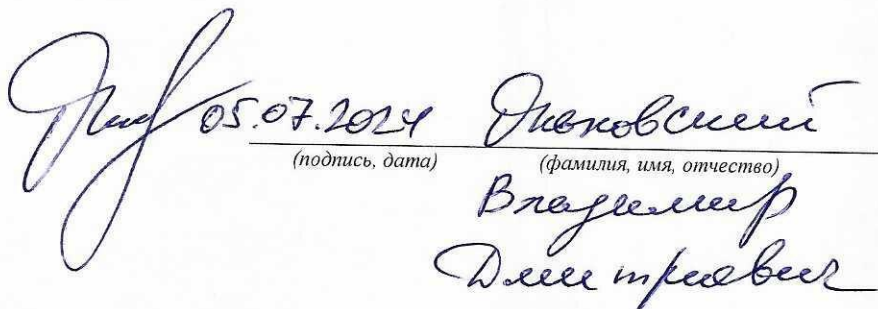 05.07.2024
(подпись, дата) (фамилия, имя, отчество)
Владимир
Дмитриевич